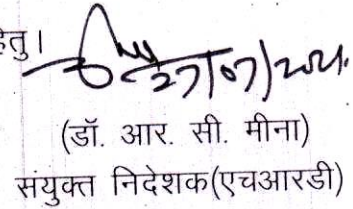 हेतु।
27/07/2021.
(डॉ. आर. सी. मीना)
संयुक्त निदेशक(एचआरडी)